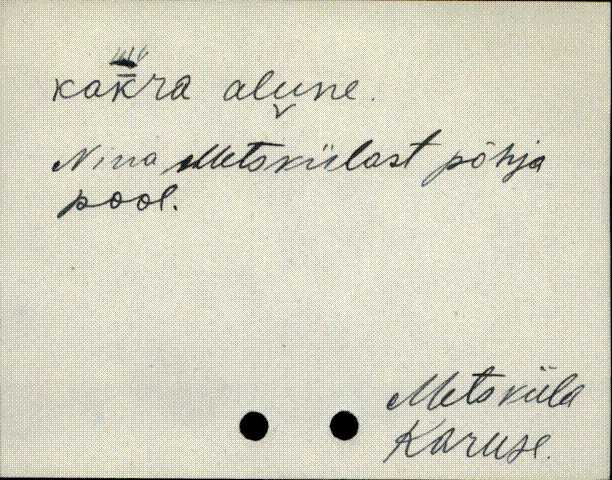 kak̄ra alune.
Nina Metskülast põhja
pool.
Metsküla
Karuse.